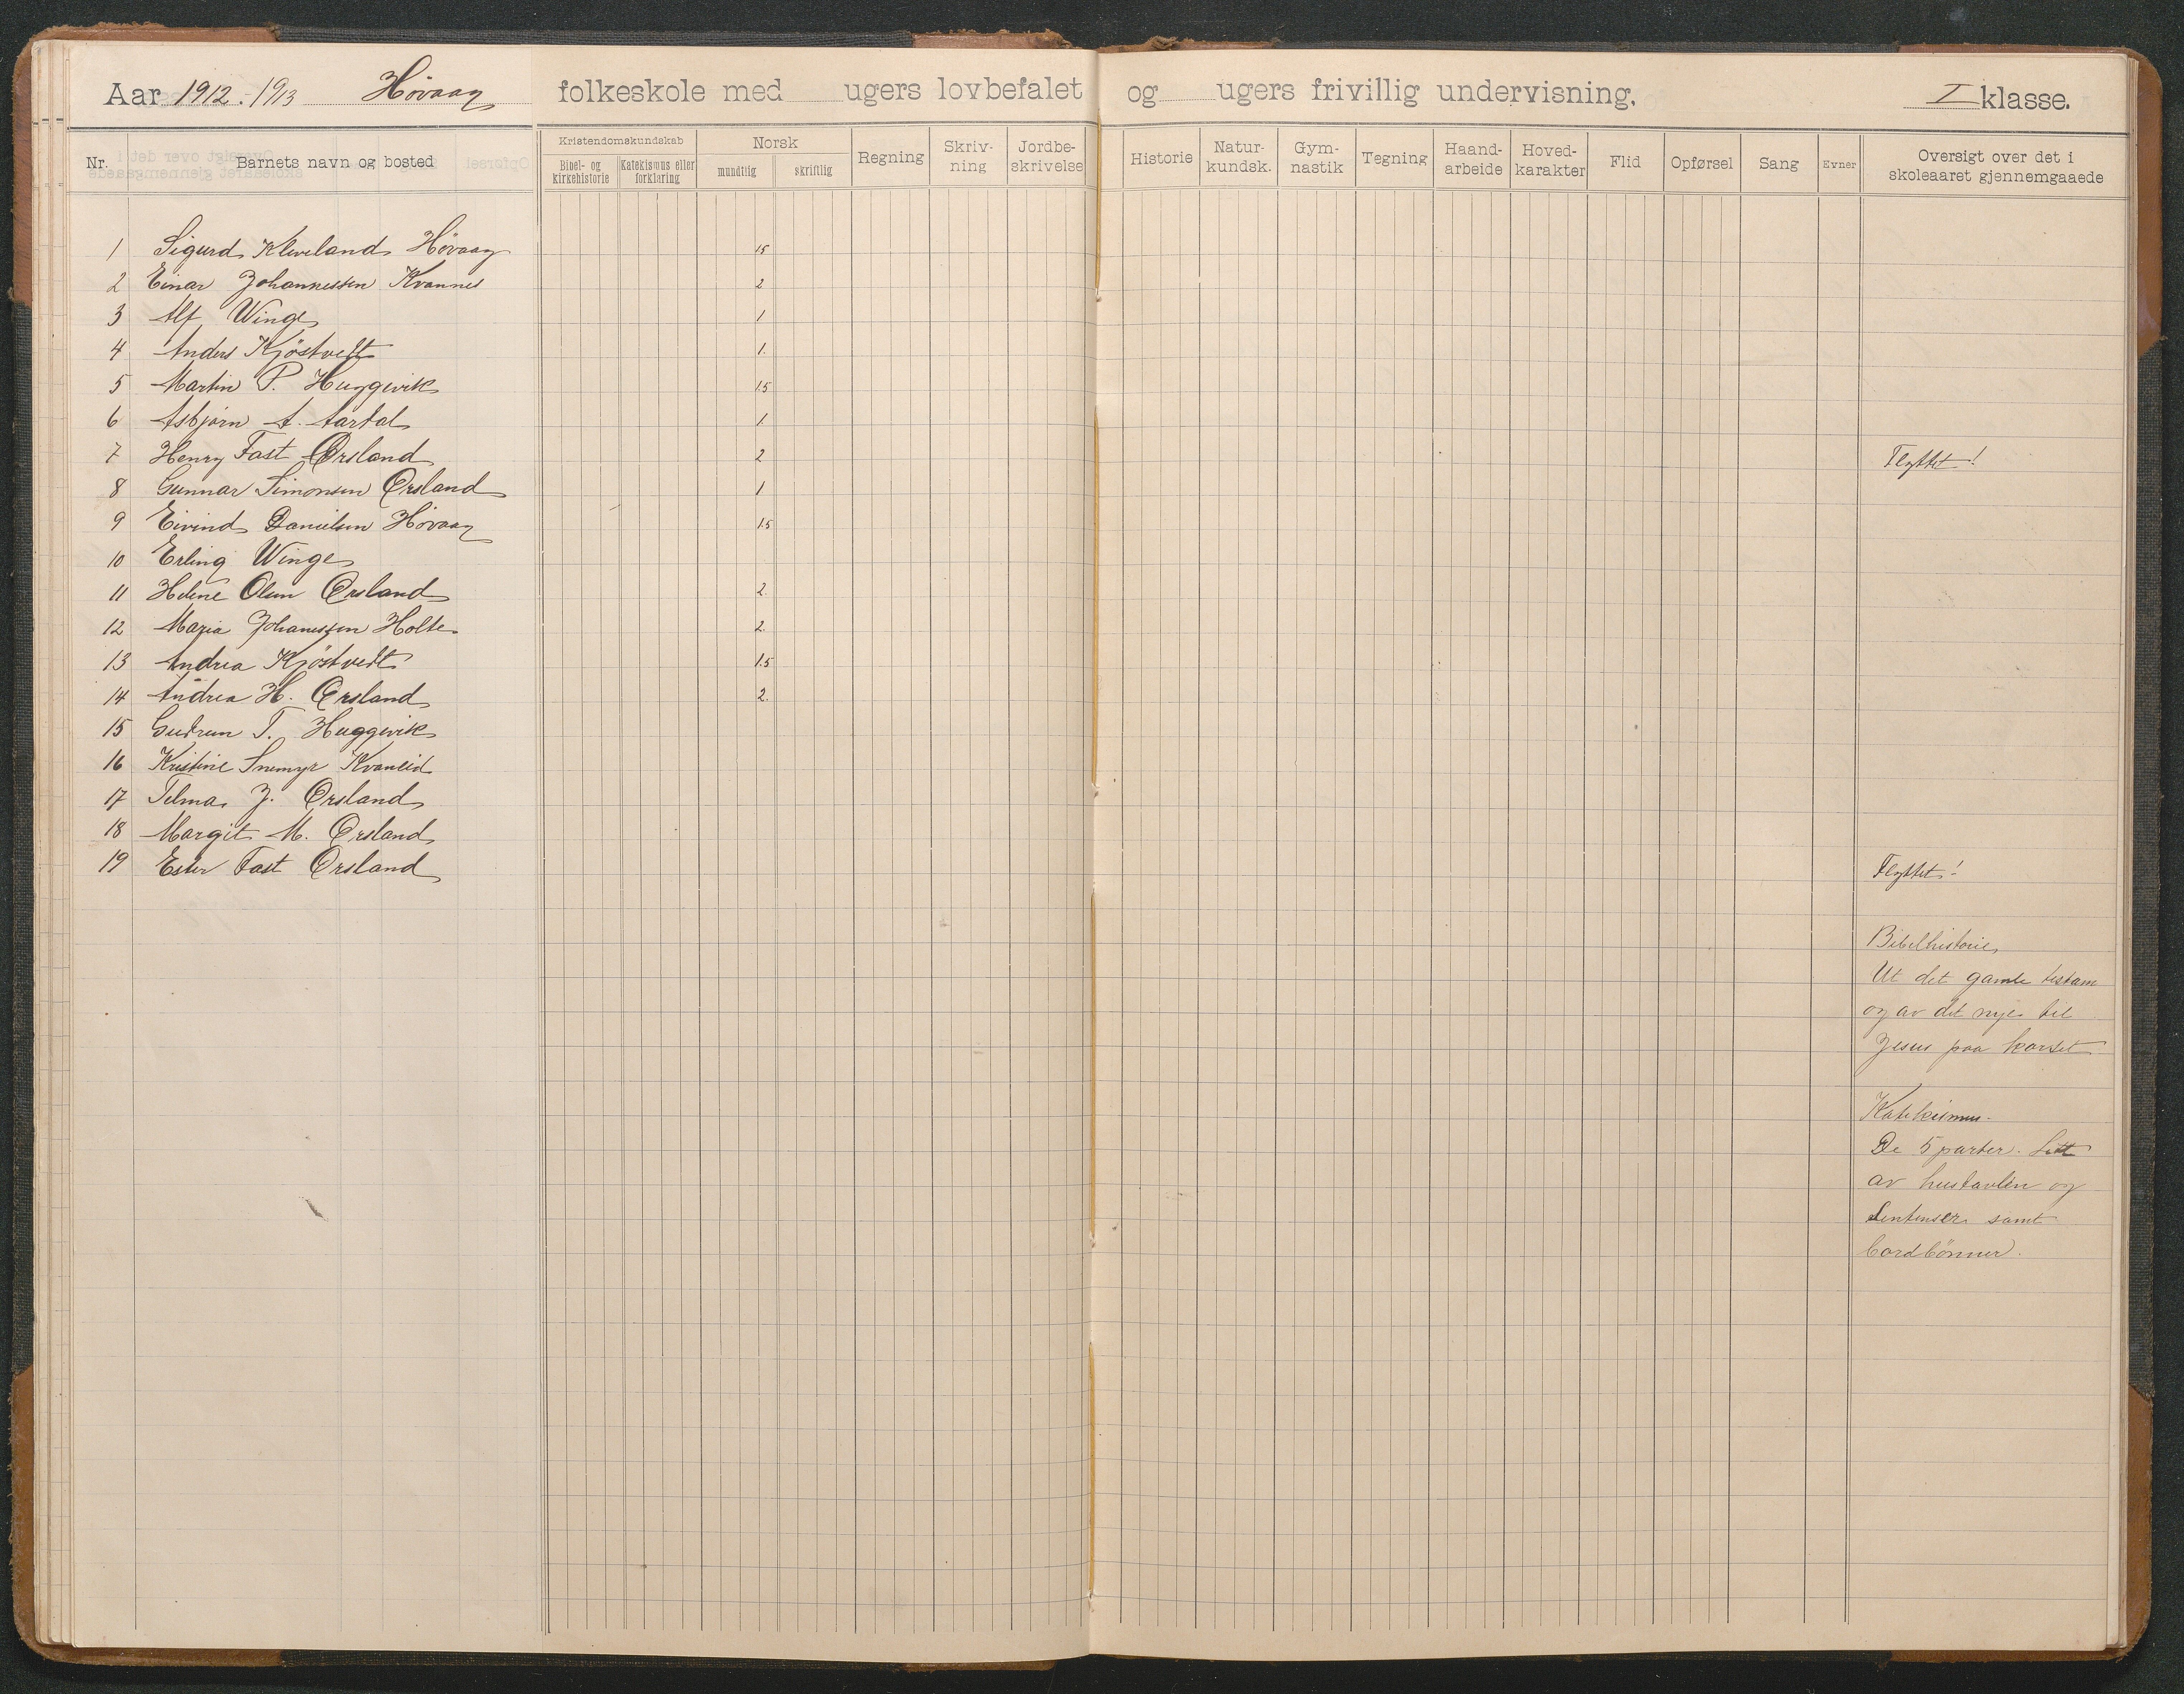 Aar 1912-1913 Høvaag folkeskole med ugers lovbefalet og ugers frivillig undervisning. I klasse.
Nr. Barnets navn og bosted Kristendomskundskab Bibel- og kirkehistorie Katekismus eller forklaring Norsk mundtlig skriftlig Regning Skriv-ning Jordbe-skrivelse Historie Natur-kundsk. Gym-nastik Tegning Haand-arbeide Hoved-karakter Flid Opførsel Sang Evner Oversigt over det i skoleaaret gjennemgaaede
1 Sigurd Kleveland Høvaag 1.5
2 Einar Johannessen Kvannes 2
3 Alf Winge 1
4 Anders Kjöstvedt 1.
5 Martin P. Huggevik 1.5
6 Asbjørn A. Aartal 1
7 Henry Fast Ørsland 2 Flyttet!
8 Gunnar Simonsen Ørsland 1
9 Eivind Danielsen Høvaag 1.5
10 Erling Winge
11 Helene Olsen Ørsland 2
12 Maria Johanessen Holte 2.
13 Andrea Kjöstvedt 1.5
14 Andrea H. Ørsland 2.
15 Gudrun T. Huggevik
16 Kristine Snemyr Kvaneid
17 Telma J. Ørsland
18 Margit M. Ørsland
19 Ester Fast Ørsland Flyttet!
Bibelhistorie
Ut det gamle testam
og av det nye til
Jesus paa korset
Katekismus
De 5 parter. Litt
av hustavlen og
Sentenser samt
bordbönner.